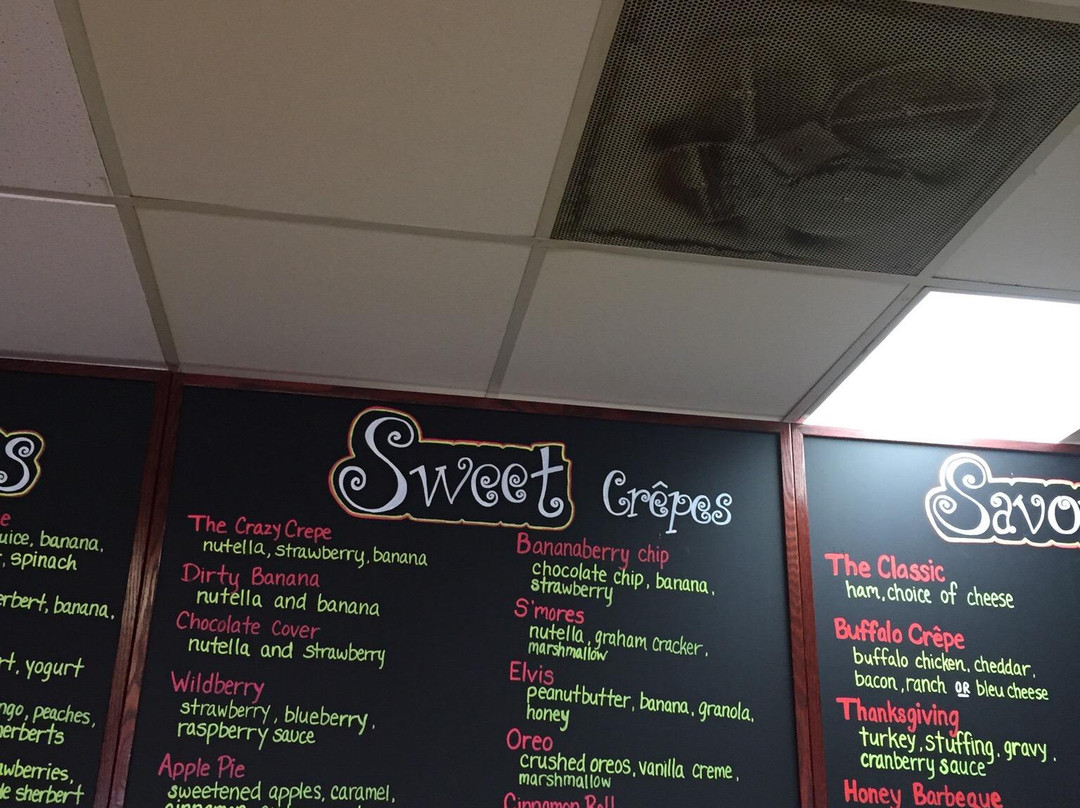 s
uice, banana,
spinach
erbert, banana,
yogurt
peaches,
herberts
sherbert
Sweet Crêpes
The Crazy Crepe
nutella, strawberry, banana
Dirty Banana
nutella and banana
Chocolate Cover
nutella and strawberry
Wildberry
strawberry, blueberry,
raspberry sauce
Apple Pie
sweetened apples, caramel,
Bananaberry chip
chocolate chip, banana,
strawberry
S'mores
nutella, graham cracker,
marshmallow
Elvis
peanutbutter, banana, granola,
honey
Oreo
crushed oreos, vanilla creme,
marshmallow
Cinnamon Roll
Savo
The Classic
ham, choice of cheese
Buffalo Crêpe
buffalo chicken, cheddar,
bacon, ranch OR bleu cheese
Thanksgiving
turkey, stuffing, gravy,
cranberry sauce
Honey Barbeque